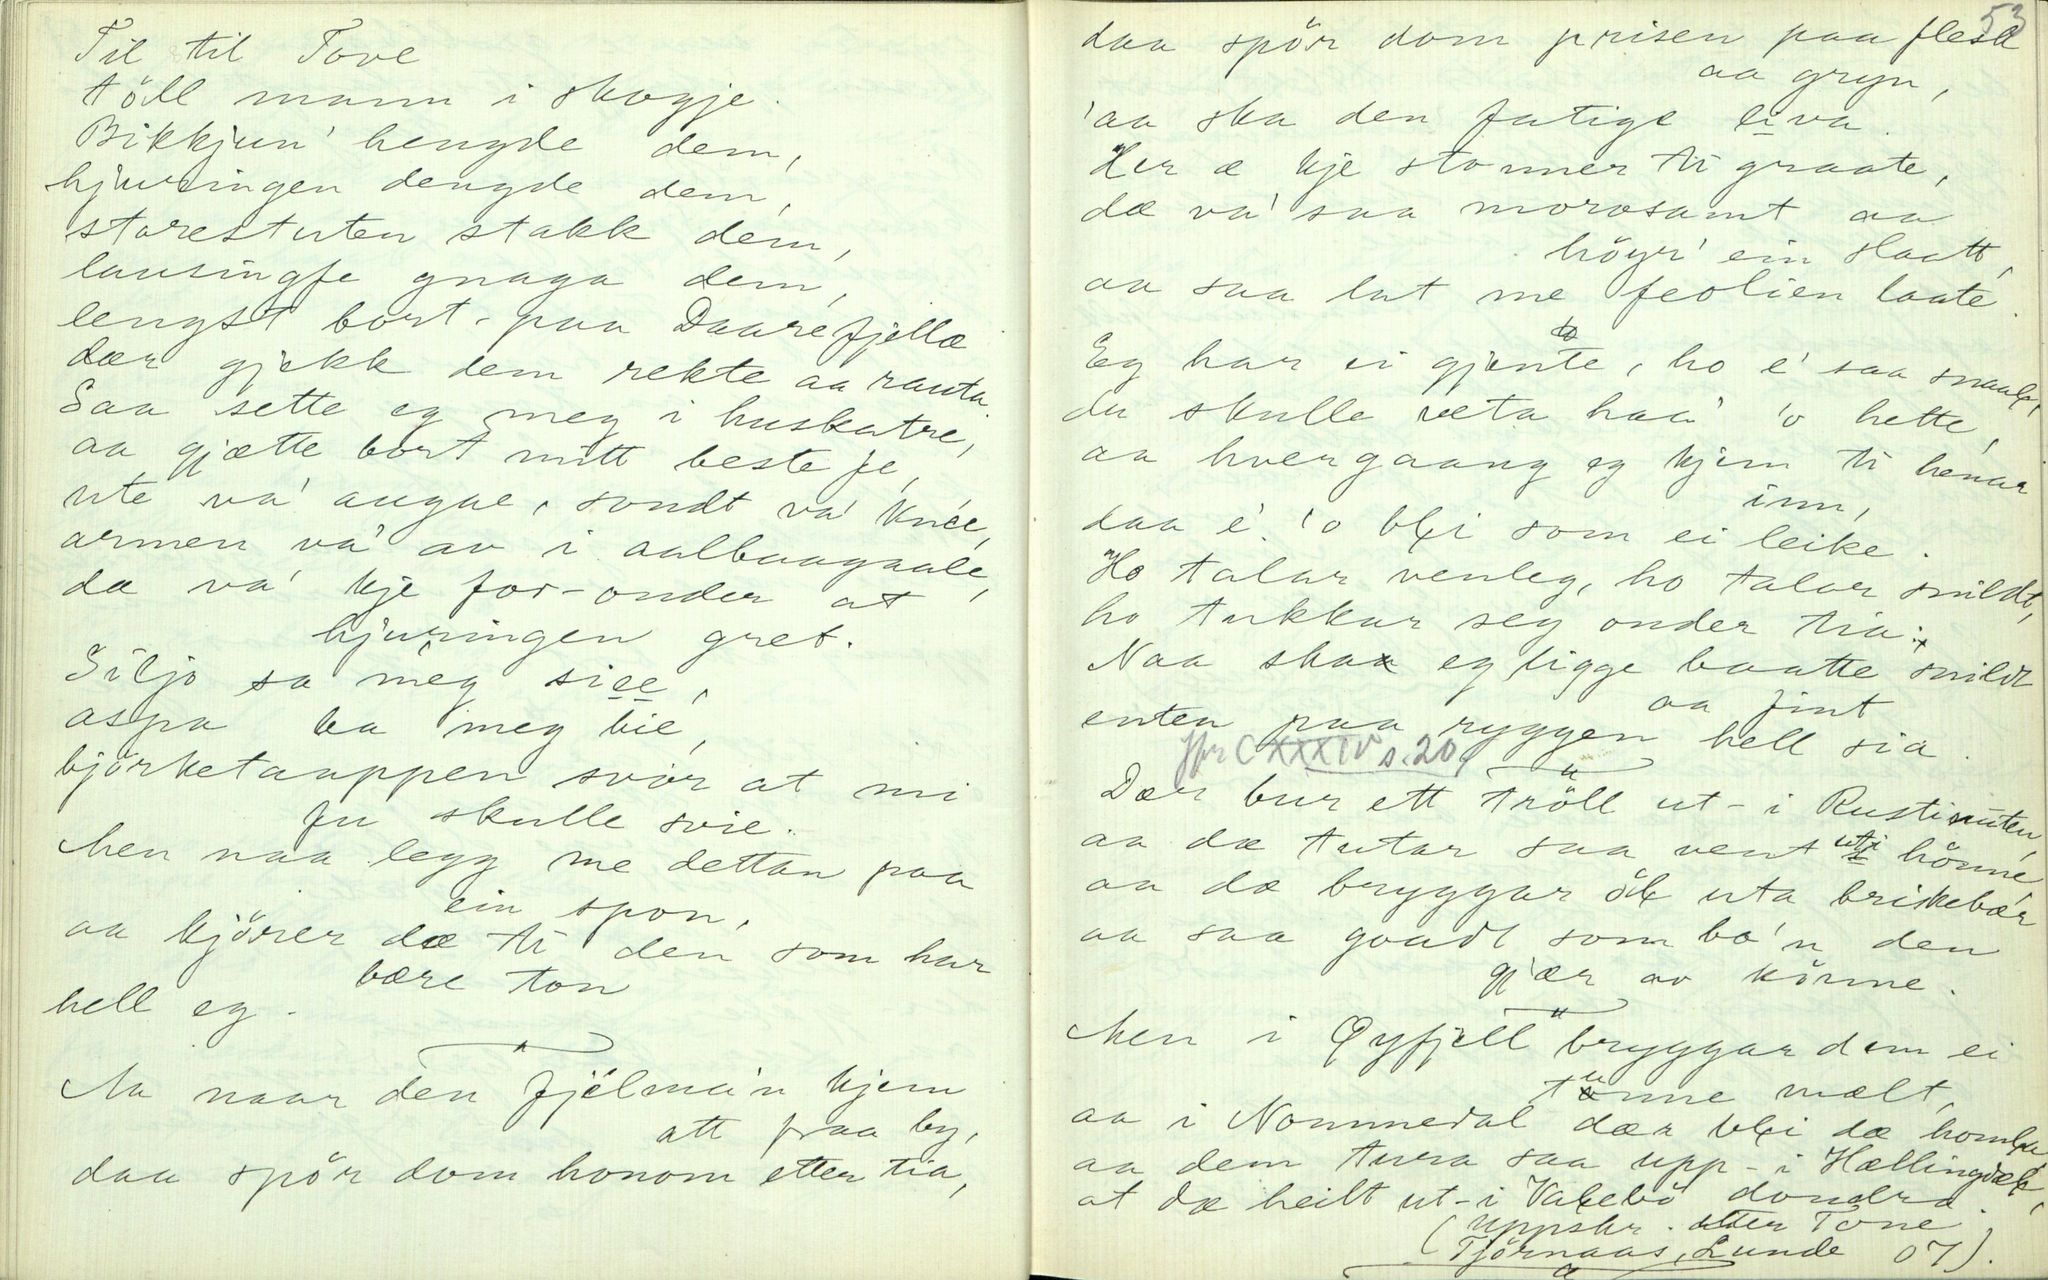 Til til Tove
töll mann i skogje.
Bikkjun' hengde dem,
hjuringen dengde dem,
starestuten stakk dem,
lausingfe gnaga dem,
lengst bort-paa Daarefjellæ
dær gjekk dem rekte aa rauta.
Saa sette eg meg i huskatre,
aa gjætte bort mitt beste fe,
ute va' augæ, sondt va' kne'e,
armen va' av i aalbaagaale,
dæ va' kje for-onder at
hjuringen gret.
Siljo sa meg siee,
aspa ba meg bie,
björketauppen svor at mi
fu skulle svie.
Men naa legg me dettan paa
ein spon,
aa kjörer dæ ti den som har
bære ton
hell eg.
Aa naar den fjélma'n kjem
att fraa by,
daa spör dom honom etter tia,
53
daa spör dom prisen paa flesk
aa gryn,
'aa ska den fatige liva.
Her æ kje stonner ti graate,
dæ va' saa morosamt aa
höyr' ein slaatt,
aa saa lat me feolien laate.
Eg har ei gjente, ho e' saa snaal,
du skulle veta haa' 'o hette,
aa hvergaang eg kjem ti henar
inn,
daa e' 'o bli som ei leike.
Ho talar venleg, ho talar smildt,
ho tukkar seg onder tia:
Naa skaa eg ligge baatte smildt
aa fint
enten paa ryggen hell sia.
jfr CXXXIV s. 20,
Dær bur ett tröll ut-i Rustinuten,
aa dæ tutar saa vent uti hönne,
aa dæ bryggar öl uta briskebær
aa saa goadt som bo'n den
gjær av könne.
Men i Øyfjell bryggar dem ei
tunne mælt,
aa i Nommedal dær bli dæ homla,
aa dem tura saa upp-i Hællingdæl,
at dæ heilt ut-i Valebö dondra.
(Uppskr. etter Tone
Tjörnaas, Lunde 07).